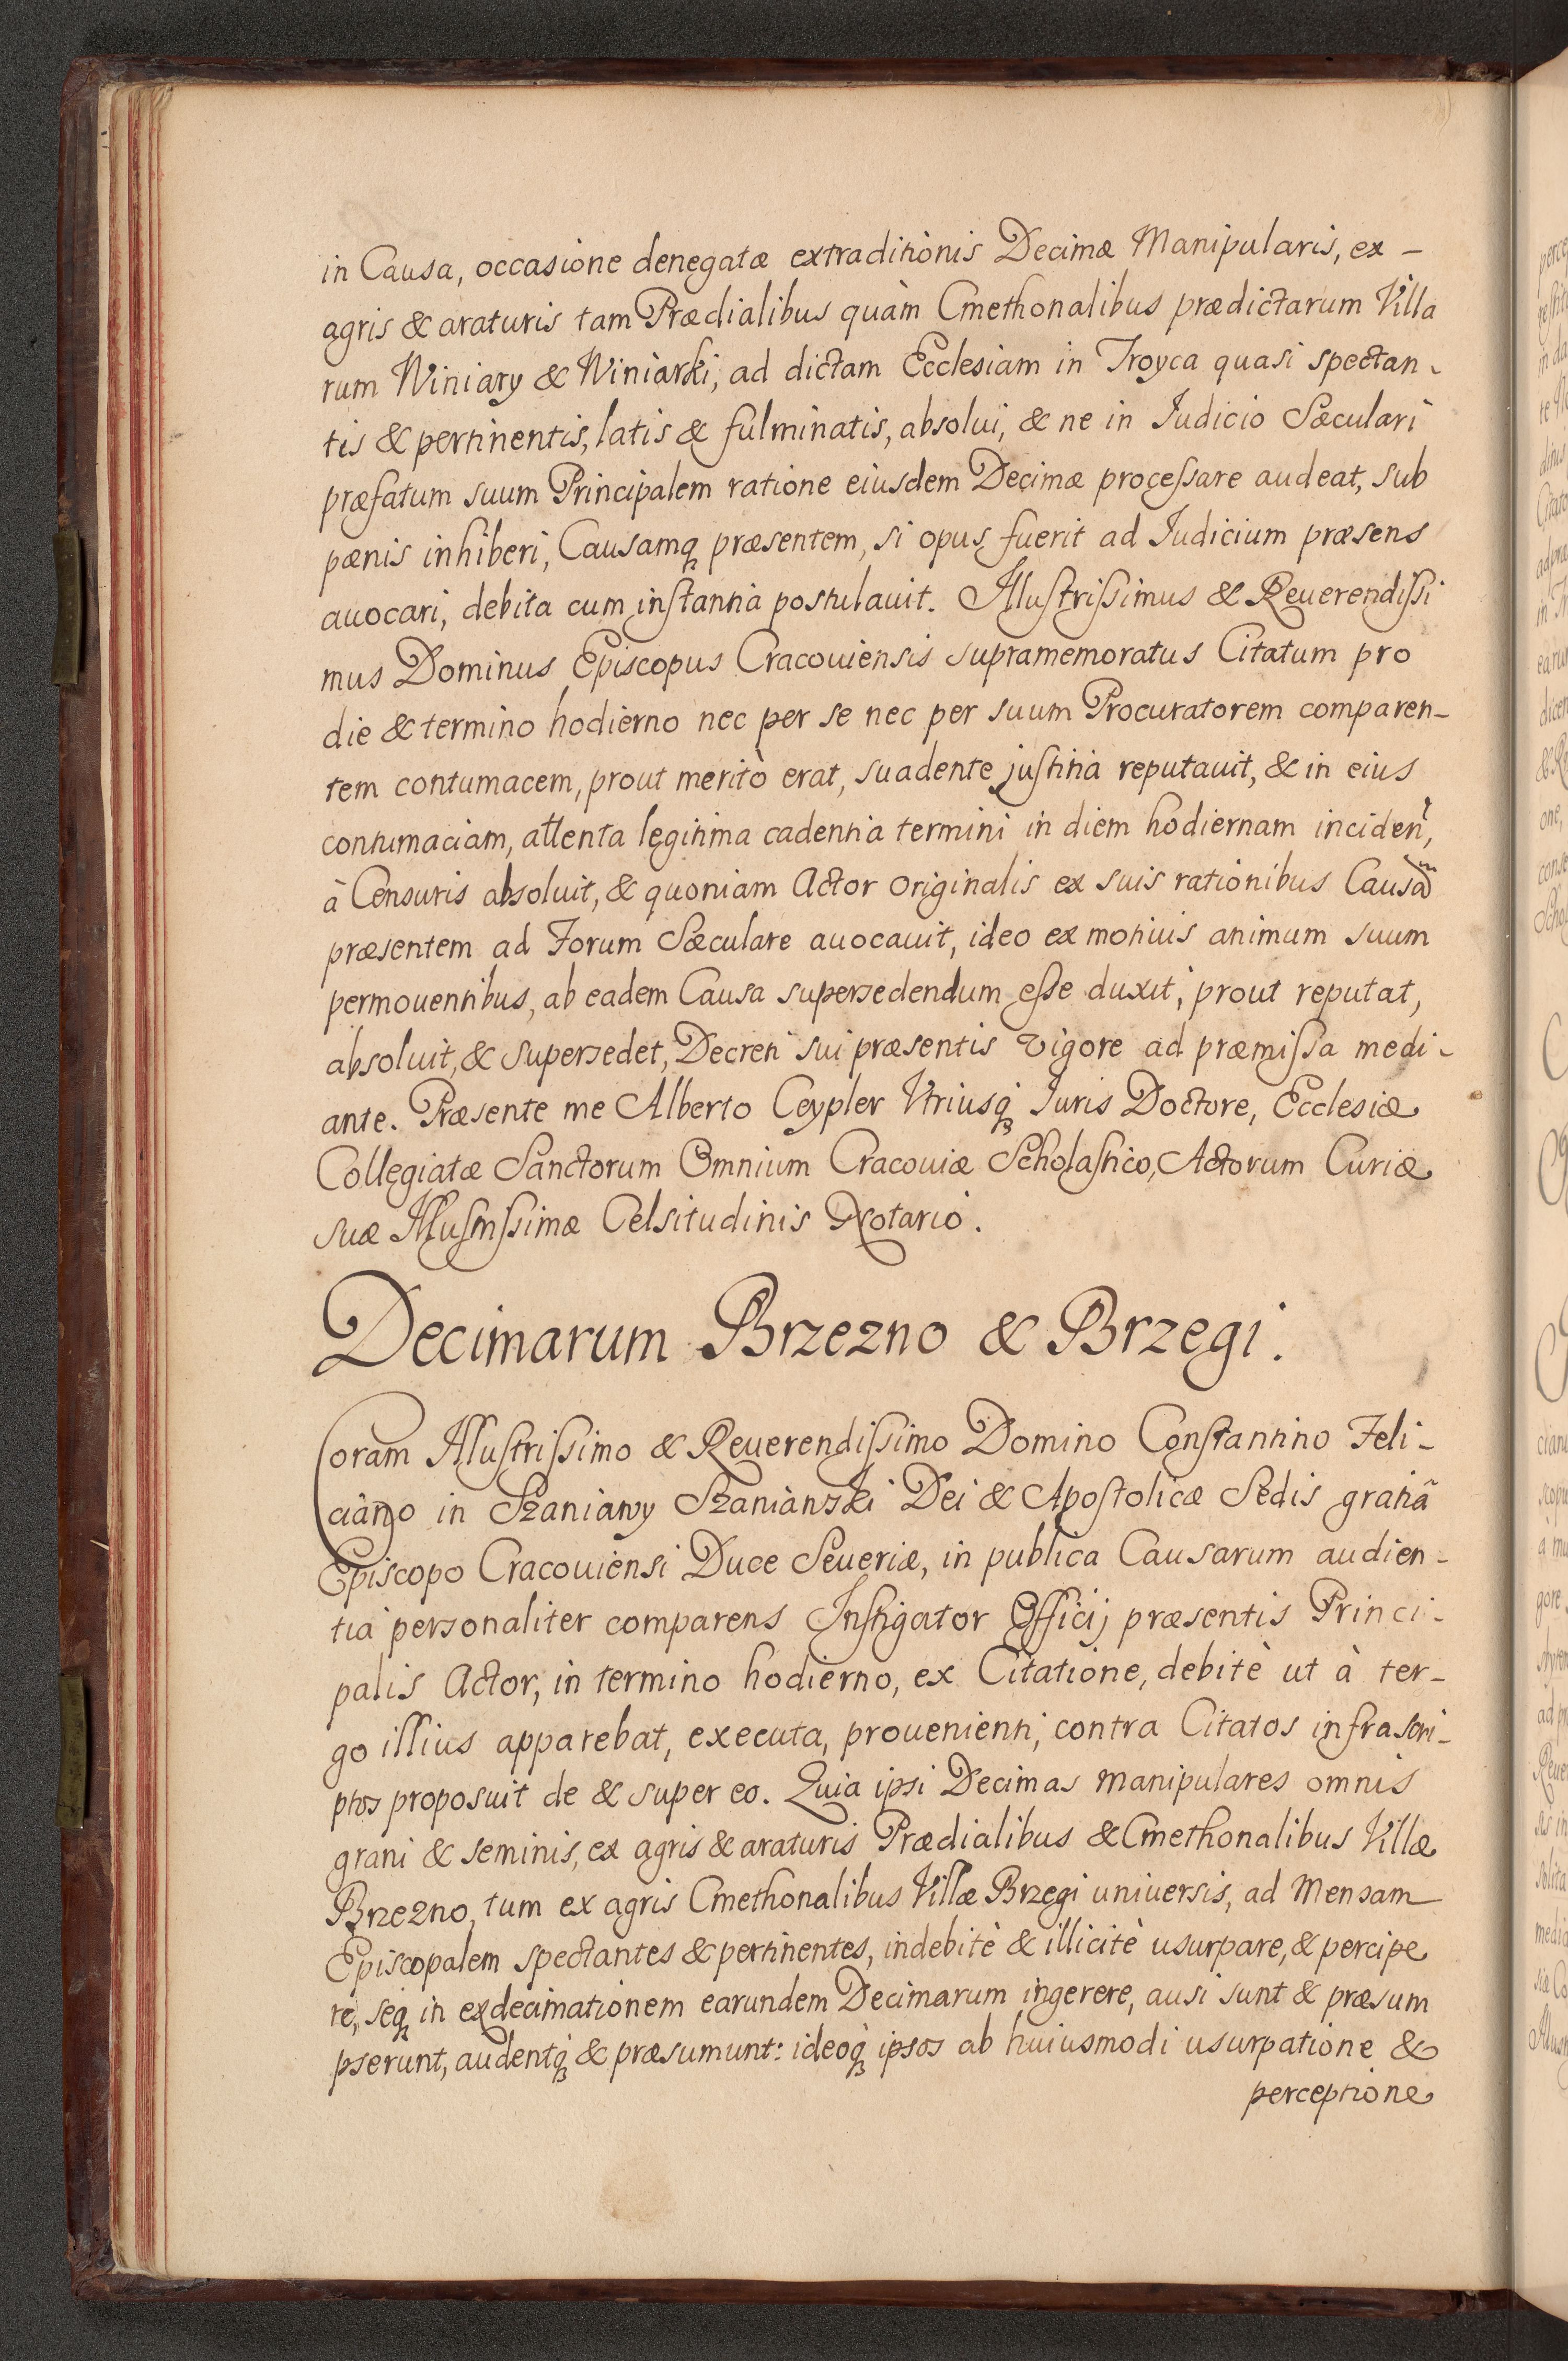 in Causa, occasione denegatæ extraditionis Decimæ Manipularis, ex –
agris & araturis tam Prædialibus quàm Cmethonalibus prædictarum Villa
rum Winiary & Winiarki, ad dictam Ecclesiam in Troyca quasi spectan-
tis & pertinentis, latis & fulminatis, absolui, & ne in Iudicio Sæculari
præfatum suum Principalem ratione eiusdem Decimæ proceſsare audeat, sub
pænis inhiberi, Causamqꝫ præsentem, si opus fuerit ad Iudicium præsens
auocari, debita cum inſtantia postulauit. Illuſtriſsimus & Reuerendiſsi
mus Dominus Episcopus Cracouiensis supramemoratus Citatum pro
die & termino hodierno nec per se nec per suum Procuratorem comparen-
tem contumacem, prout meritò erat, suadente juſtitia reputauit, & in eius
contumaciam, attenta legitima cadentia termini in diem hodiernam incideñt,
à Censuris absoluit, & quoniam Actor originalis ex suis rationibus Causam̃
præsentem ad Forum Sæculare auocauit, ideo ex motiuis animum suum
permouentibus, ab eadem Causa supersedendum eſse duxit, prout reputat,
absoluit, & supersedet, Decreti sui præsentis vigore ad præmiſsa medi-
ante. Præsente me Alberto Ceypler Vtriusqꝫ Iuris Doctore, Ecclesiæ
Collegiatæ Sanctorum Omnium Cracouiæ Scholaſtico, Actorum Curiæ
suæ Illuſtriſsimæ Celsitudinis Notario.
Decimarum Brzezno & Brzegi.
Coram Illuſtriſsimo & Reuerendiſsimo Domino Conſtantino Feli-
ciano in Szaniawy Szaniawski Dei & Apoſtolicæ Sedis gratiã
Episcopo Cracouiensi Duce Seueriæ, in publica Causarum audien-
tia personaliter comparens Inſtigator Officij præsentis Princi-
palis Actor, in termino hodierno, ex Citatione, debitè ut à ter-
go illius apparebat, executa, prouenienti, contra Citatos infrascri-
ptos proposuit de & super eo. Quia ipsi Decimas manipulares omnis
grani & seminis, ex agris & araturis Prædialibus & Cmethonalibus Villæ
Brzezno, tum ex agris Cmethonalibus Villæ Brzegi uniuersis, ad Mensam
Episcopalem spectantes & pertinentes, indebitè & illicitè usurpare, & percipe
re, seqꝫ in exdecimationem earundem Decimarum ingerere, ausi sunt & præsum
pserunt, audentqꝫ & præsumunt: ideoqꝫ ipsos ab huiusmodi usurpatione &
perceptione